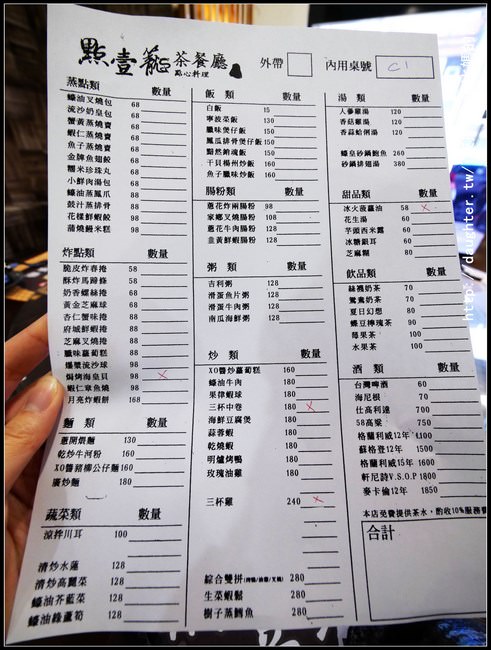 點壹籠 茶餐廳
點心料理
外帶
內用桌號 C1
蒸點類 數量
蠔油叉燒包 68
流沙奶皇包 68
蟹黃蒸燒賣 68
蝦仁蒸燒賣 68
魚子蒸燒賣 68
金牌魚翅餃 68
糯米珍珠丸 68
小鮮肉湯包 68
蠔油蒸鳳爪 88
鼓汁蒸排骨 88
花樣鮮蝦餃 98
蒲燒鰻米糕 98
炸點類 數量
脆皮炸春捲 58
酥炸馬蹄條 58
奶香螺絲捲 68
黃金芝麻球 68
杏仁蟹味捲 88
府城鮮蝦捲 98
芝麻叉燒捲 88
臘味蘿蔔糕 88
爆漿流沙球 98
焗烤海皇貝 98 X
蝦仁韋魚燒 98
月亮炸蝦餅 168
麵類 數量
蔥開煨麵 130
乾炒牛河粉 160
XO醬豬柳公仔麵 160
廣炒麵 180
蔬菜類 數量
涼拌川耳 100
清炒水蓮 128
清炒高麗菜 128
蠔油芥藍菜 128
蠔油綠蘆筍 128
飯類 數量
白飯 15
寧波菜飯 130
臘味煲仔飯 150
鳳瓜排骨煲仔飯 150
黯然銷魂飯 150
干貝楊州炒飯 160
魚子臘味炒飯 160
腸粉類 數量
蔥花炸兩腸粉 98
家鄉叉燒腸粉 108
蔥花牛肉腸粉 128
韭黃鮮蝦腸粉 128
粥類 數量
吉利粥 128
滑蛋魚片粥 128
滑蛋牛肉粥 128
南瓜海鮮粥 128
炒類 數量
XO醬炒蘿蔔糕 160
蠔油牛肉 180
果律蝦球 180
三杯中卷 180 X
海鮮豆腐煲 180
蒜蓉蝦 180
乾燒蝦 180
明爐烤鴨 180
玫瑰油雞 180
三杯雞 240 X
綜合雙拼(烤鴨/油雞/叉燒) 280
生菜蝦鬆 280
樹子蒸鱈魚 280
湯類 數量
人蔘雞湯 120
香菇雞湯 120
香蒜蛤俐湯 120
蠔皇砂鍋鮑魚 260
砂鍋排翅湯 380
甜品類 數量
冰火菠蘿油 58 X
花生湯 60
芋頭西米露 60
冰糖銀耳 60
芝麻糊 80
飲品類 數量
絲襪奶茶 70
鴛鴦奶茶 70
夏日幻想 80
蝶豆檸瑰茶 90
莓果茶 100
水果茶 100
酒類 數量
台灣啤酒 60
海尼根 70
仕高利達 700
58高粱 750
格蘭利威12年 1100
蘇格登12年 1500
格蘭利威15年 1600
軒尼詩V.S.OP 1800
麥卡倫12年 1850
本店免費提供茶水，酌收10%服務費
合計
http://daughter.tw/